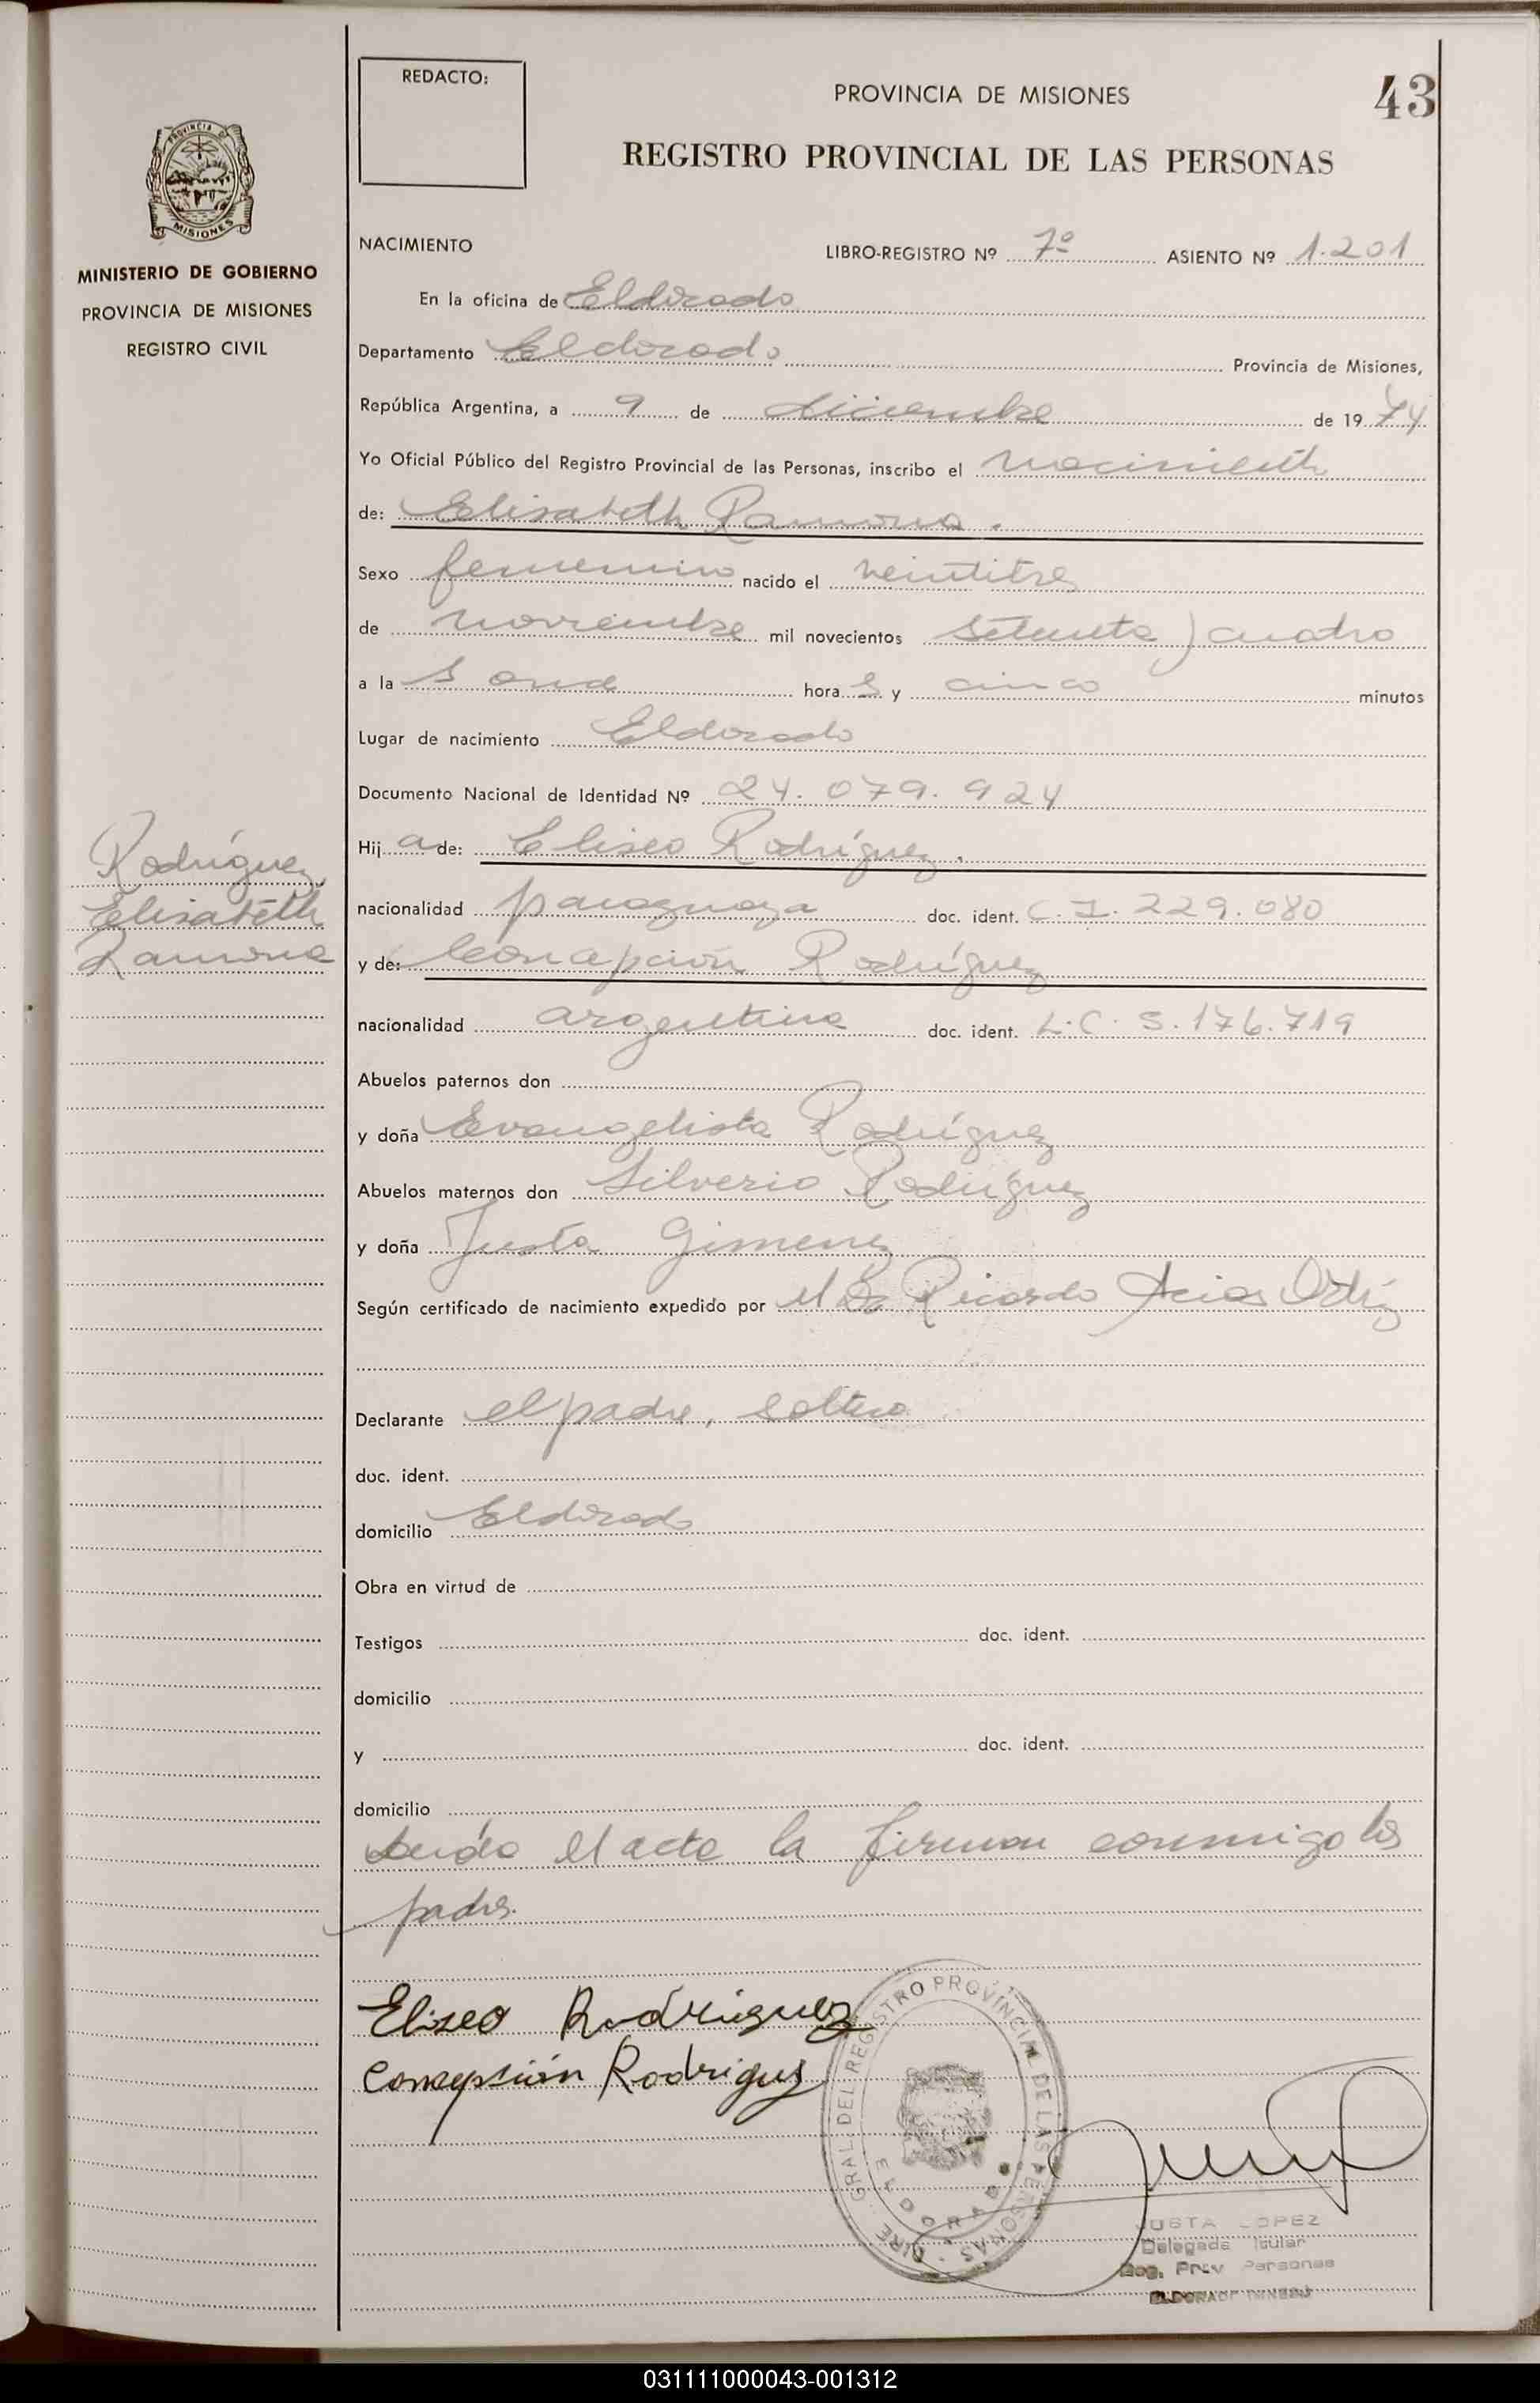 REDACTO:
PROVINCIA DE MISIONES
43
REGISTRO PROVINCIAL DE LAS PERSONAS
PROVINCIA DE
MISIONES
MINISTERIO DE GOBIERNO
PROVINCIA DE MISIONES
REGISTRO CIVIL
NACIMIENTO LIBRO-REGISTRO Nº 7º ASIENTO Nº 1.201
En la oficina de Eldorado
Departamento Eldorado Provincia de Misiones,
República Argentina, a 9 de diciembre de 1974
Yo Oficial Público del Registro Provincial de las Personas, inscribo el nacimiento
de: Elisabeth Ramona.
Sexo femenino nacido el veintitres
de noviembre mil novecientos setenta y cuatro
a las once horas y cinco minutos
Lugar de nacimiento Eldorado
Documento Nacional de Identidad Nº 24.079.924
Hija de: Eliseo Rodríguez.
Rodríguez
Elisabeth
Ramona
nacionalidad paraguaya doc. ident. C.I. 229.080
y de: Concepción Rodríguez
nacionalidad argentina doc. ident. L.C. 5.176.719
Abuelos paternos don
y doña Evangelista Rodríguez
Abuelos maternos don Silverio Rodríguez
y doña Justa Gimenez
Según certificado de nacimiento expedido por el Dr Ricardo Ortíz
Declarante el padre, soltero
doc. ident.
domicilio Eldorado
Obra en virtud de
Testigos doc. ident.
domicilio
y doc. ident.
domicilio
Leída el acta la firman conmigo los
padres.
Eliseo Rodriguez
Concepsión Rodriguez
DIRE. GRAL. DEL REGISTRO PROVINCIAL DE LAS PERSONAS
ELDORADO
JUSTA LOPEZ
Delegada Titular
Reg. Prov Personas
ELDORADO
031111000043-001312